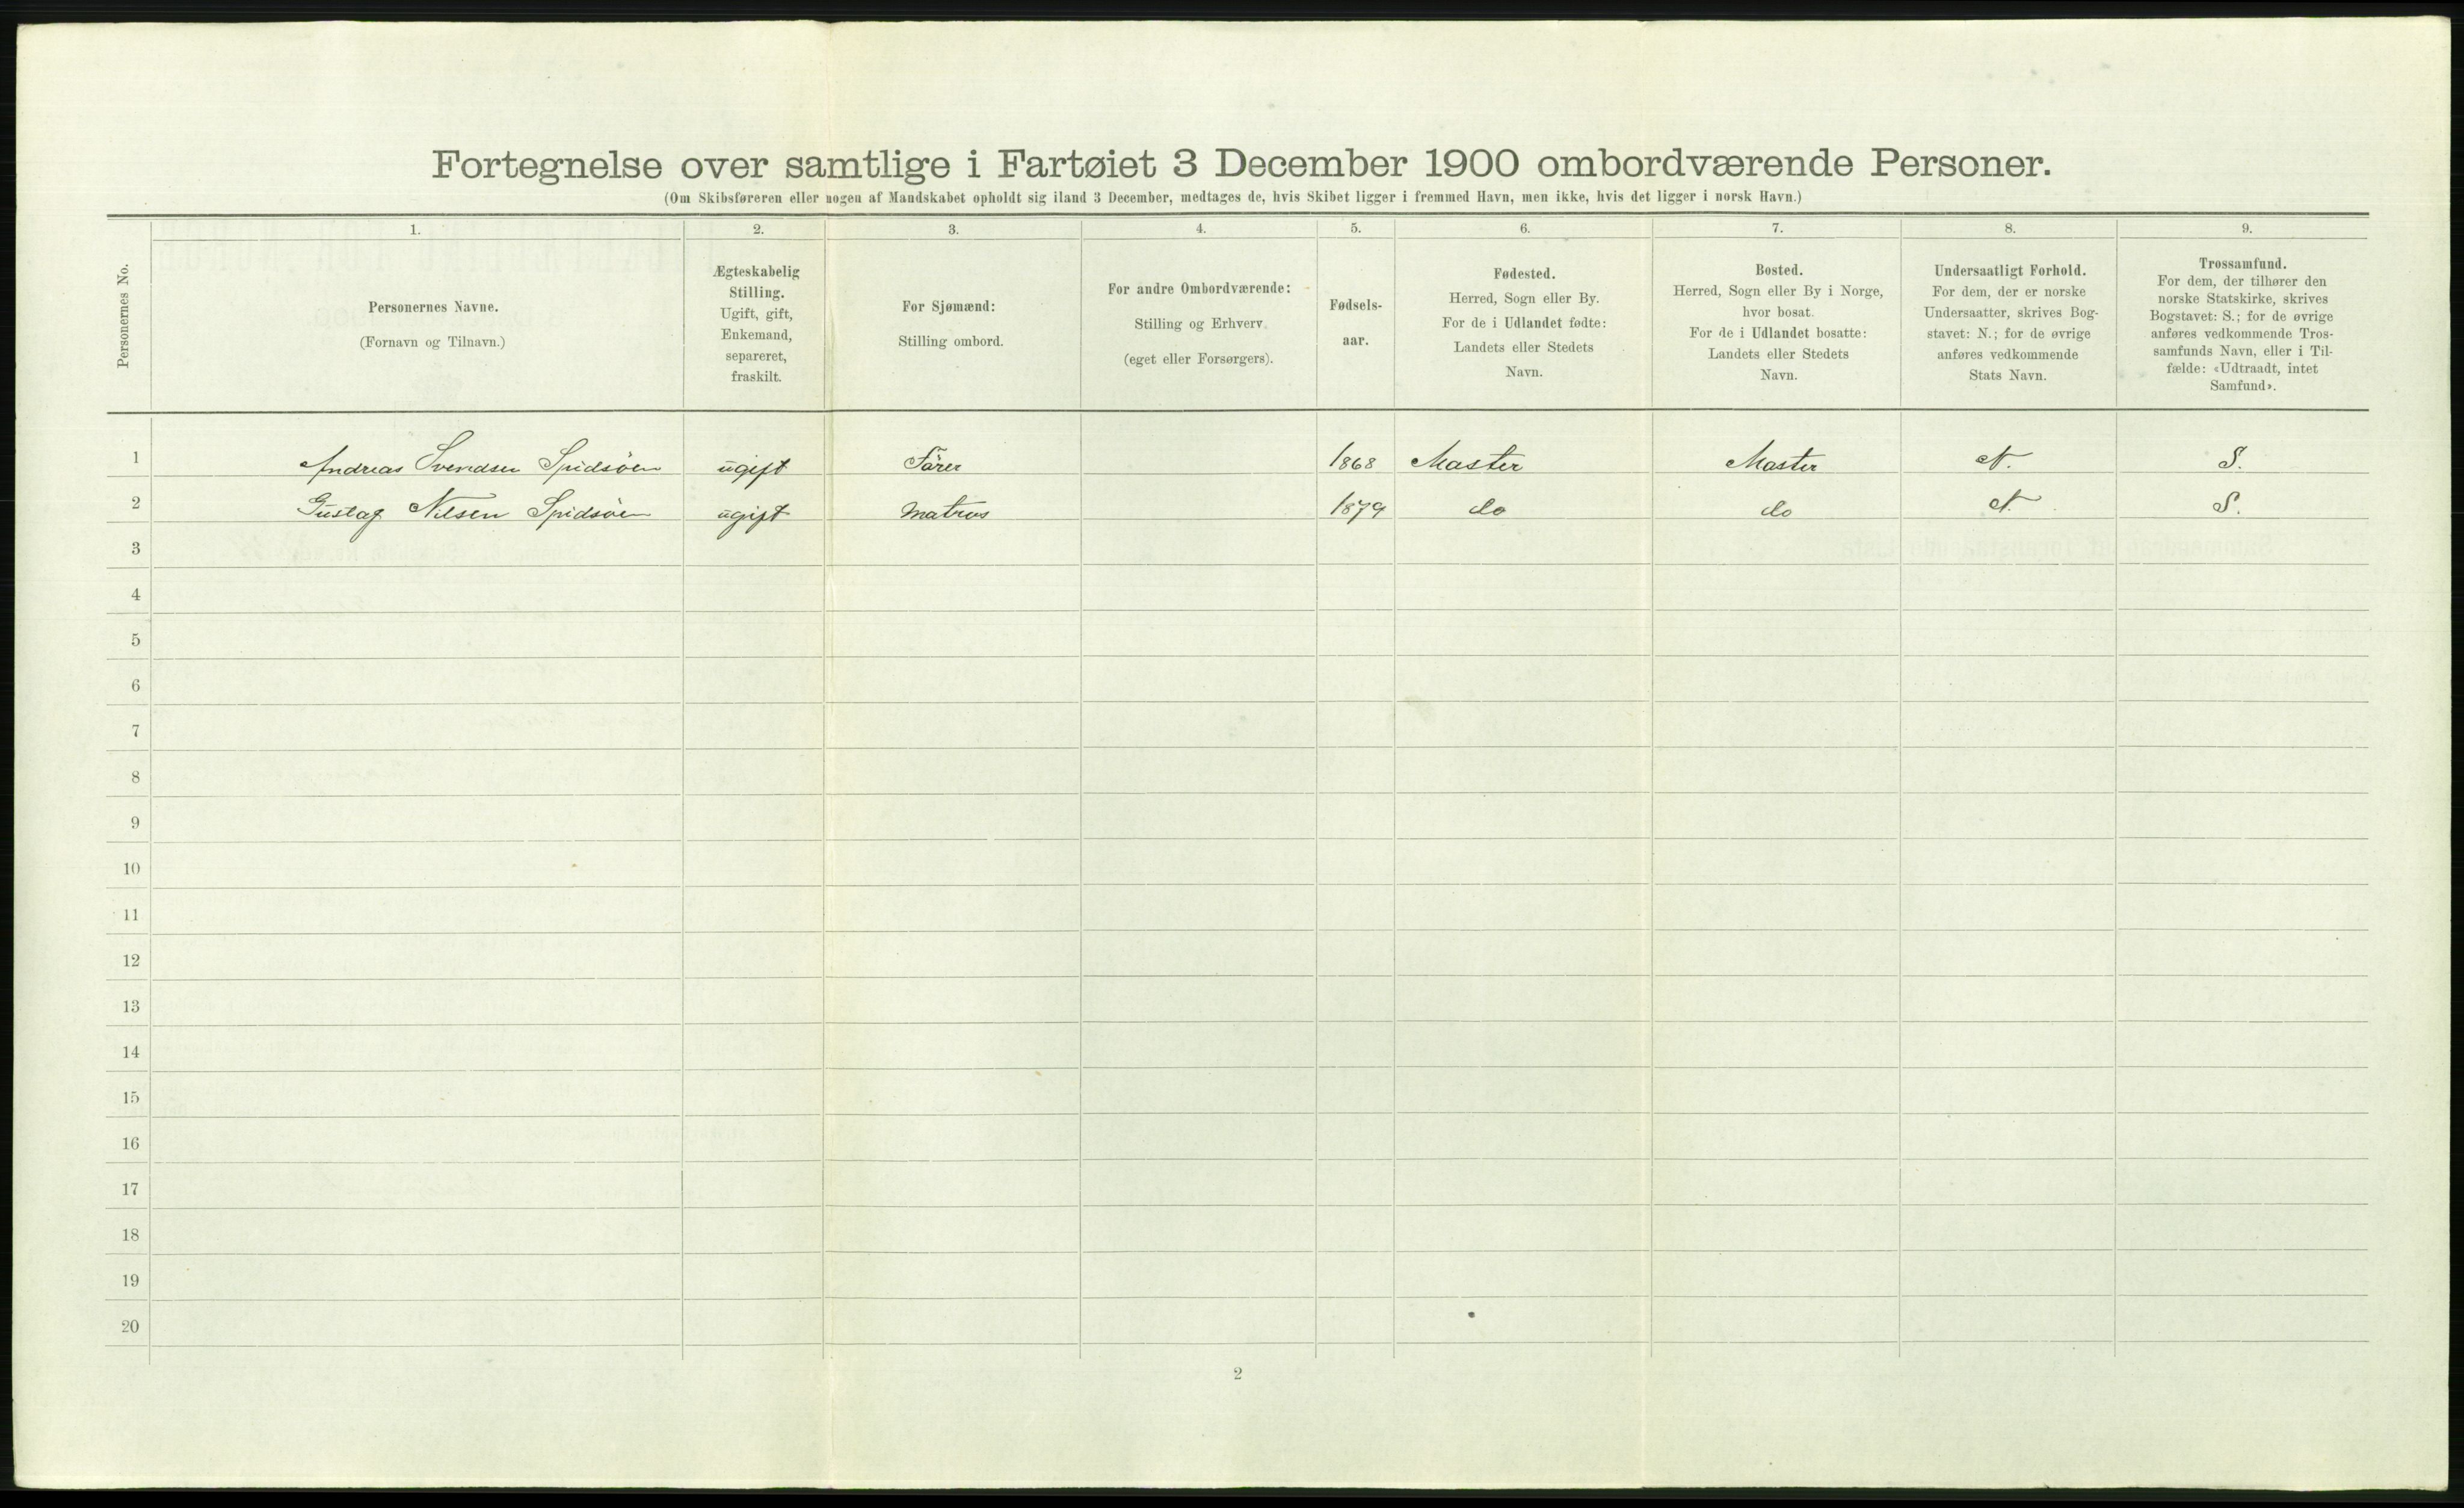 Fortegnelse over samtlige i Fartøiet 3 December 1900 ombordværende Personer.
(Om Skibsføreren eller nogen af Mandskabet opholdt sig iland 3 December, medtages de, hvis Skibet ligger i fremmed Havn, men ikke, hvis det ligger i norsk Havn.)
Personernes No.
1.
Personernes Navne.
(Fornavn og Tilnavn.)
2.
Ægteskabelig
Stilling.
Ugift, gift,
Enkemand,
separeret,
fraskilt.
3.
For Sjømænd:
Stilling ombord.
4.
For andre Ombordværende:
Stilling og Erhverv
(eget eller Forsørgers).
5.
Fødsels-
aar.
6.
Fødested.
Herred, Sogn eller By.
For de i Udlandet fødte:
Landets eller Stedets
Navn.
7.
Bosted.
Herred, Sogn eller By i Norge,
hvor bosat.
For de i Udlandet bosatte:
Landets eller Stedets
Navn.
8.
Undersaatligt Forhold.
For dem, der er norske
Undersaatter, skrives Bog-
stavet: N.; for de øvrige
anføres vedkommende
Stats Navn.
9.
Trossamfund.
For dem, der tilhører den
norske Statskirke, skrives
Bogstavet: S.; for de øvrige
anføres vedkommende Tros-
samfunds Navn, eller i Til-
fælde: «Udtraadt, intet
Samfund».
1 Andreas Svendsen Spidsöen ugift Förer 1868 Moster Moster N. S.
2 Gustaf Nilsen Spidsöen ugift Matros 1879 do do N. S.
3
4
5
6
7
8
9
10
11
12
13
14
15
16
17
18
19
20
2